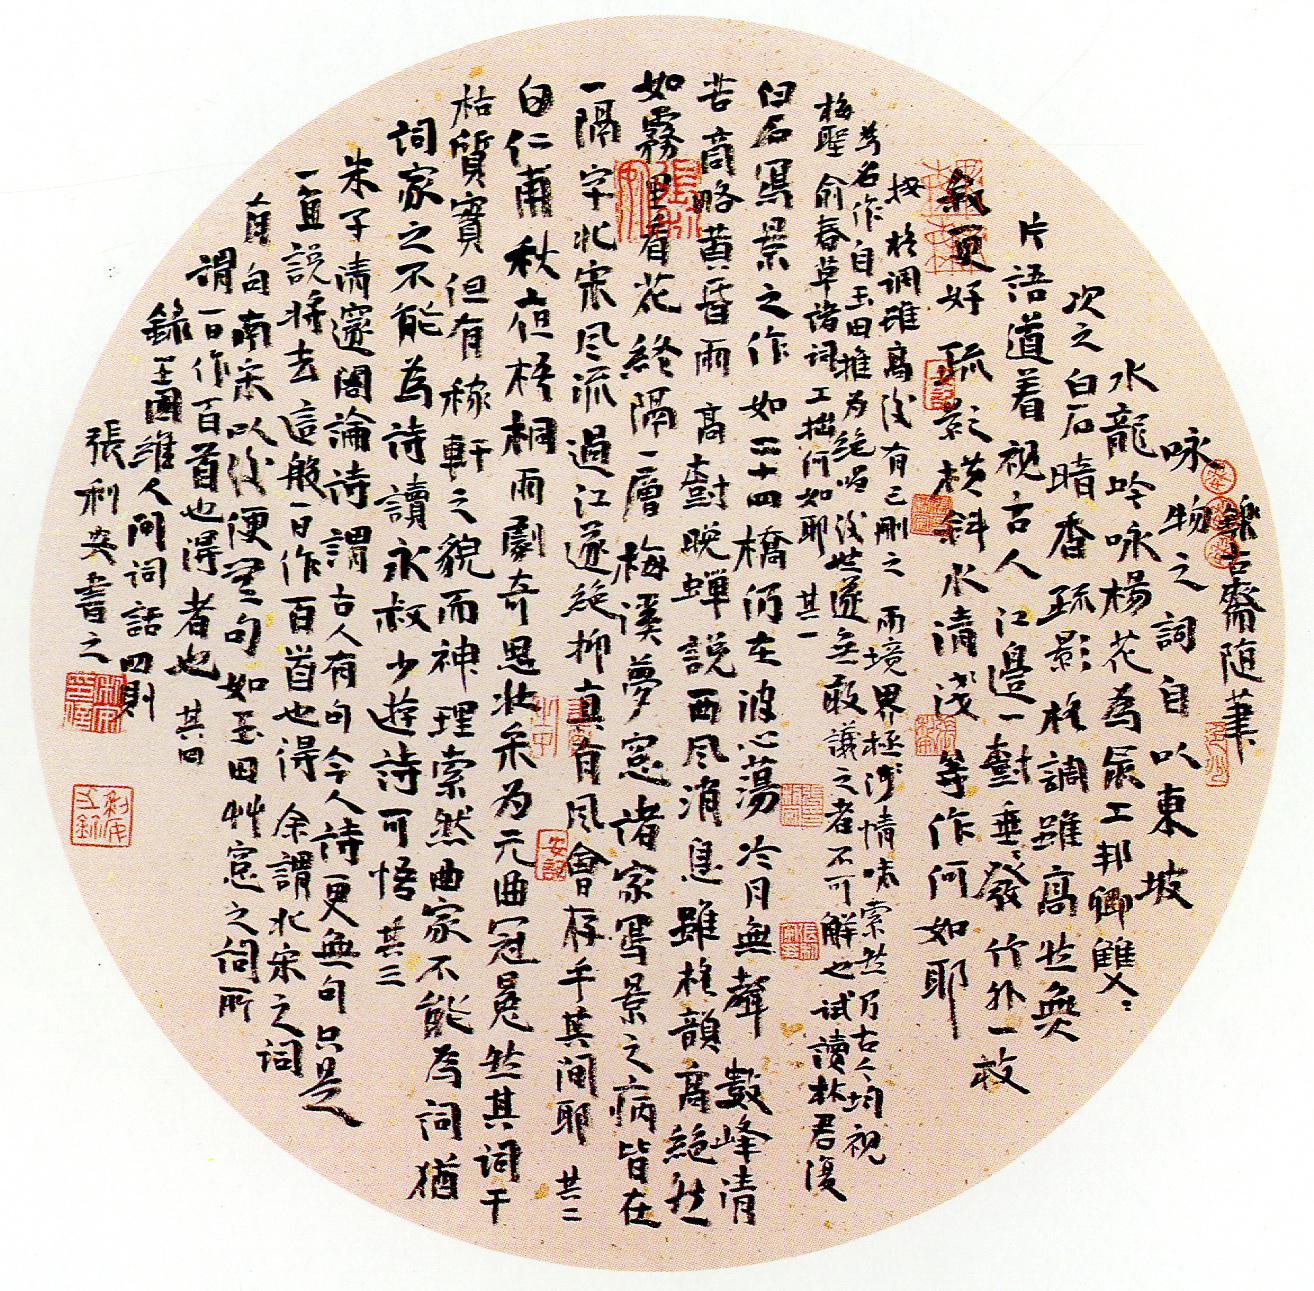 鑠古齋隨筆
咏物之詞自以東坡
水龍吟咏楊花為㝡工邦卿雙〻
次之白石暗香疏影格調雖高然無
片語道着視古人江邊一樹垂〻發竹外一枝
斜更好疏影橫斜水清淺等作何如耶
按格調雖高後有已刪之 兩境界極淺情味索然乃古今均視
為名作自玉田推為絕唱後世遂無敢議之者不可解也試讀林君復
梅聖俞春草諸詞工拙何如耶 其一
白石寫景之作如二十四橋仍在波心蕩冷月無聲數峰清
苦商略黃昏雨高樹晚蟬說西風消息雖格韻高絕然
如霧里看花終隔一層梅溪夢窗諸家寫景之病皆在
一隔字北宋風流過江遂絕抑真有風會存乎其間耶 其二
白仁甫秋夜梧桐雨劇奇思壯采為元曲冠冕然其詞干
枯質實但有稼軒之貌而神理索然曲家不能為詞猶
詞家之不能為詩讀永叔少游詩可悟 其三
朱子清邃閣論詩謂古人有句今人詩更無句只是
一直說將去這般一日作百首也得余謂北宋之詞
有句南宋以後便無句如玉田草窗之詞所
謂一日作百首也得者也 其四
錄王國維人間詞話四則
張利安書之